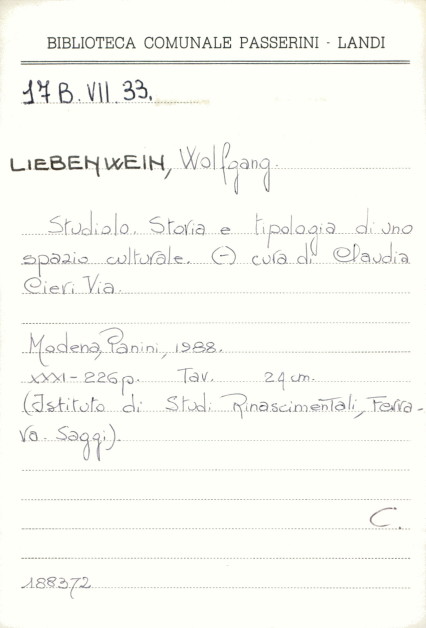 BIBLIOTECA COMUNALE PASSERINI - LANDI
17 B. VII. 33.
LIEBENWEIN, Wolfgang.
Studiolo. Storia e tipologia di uno
spazio culturale. (-) cura di Claudia
Cieri Via.
Modena, Panini, 1988.
XXXI-226 p. Tav. 24 cm.
(Istituto di Studi Rinascimentali, Ferra-
ra. Saggi).
C.
188372